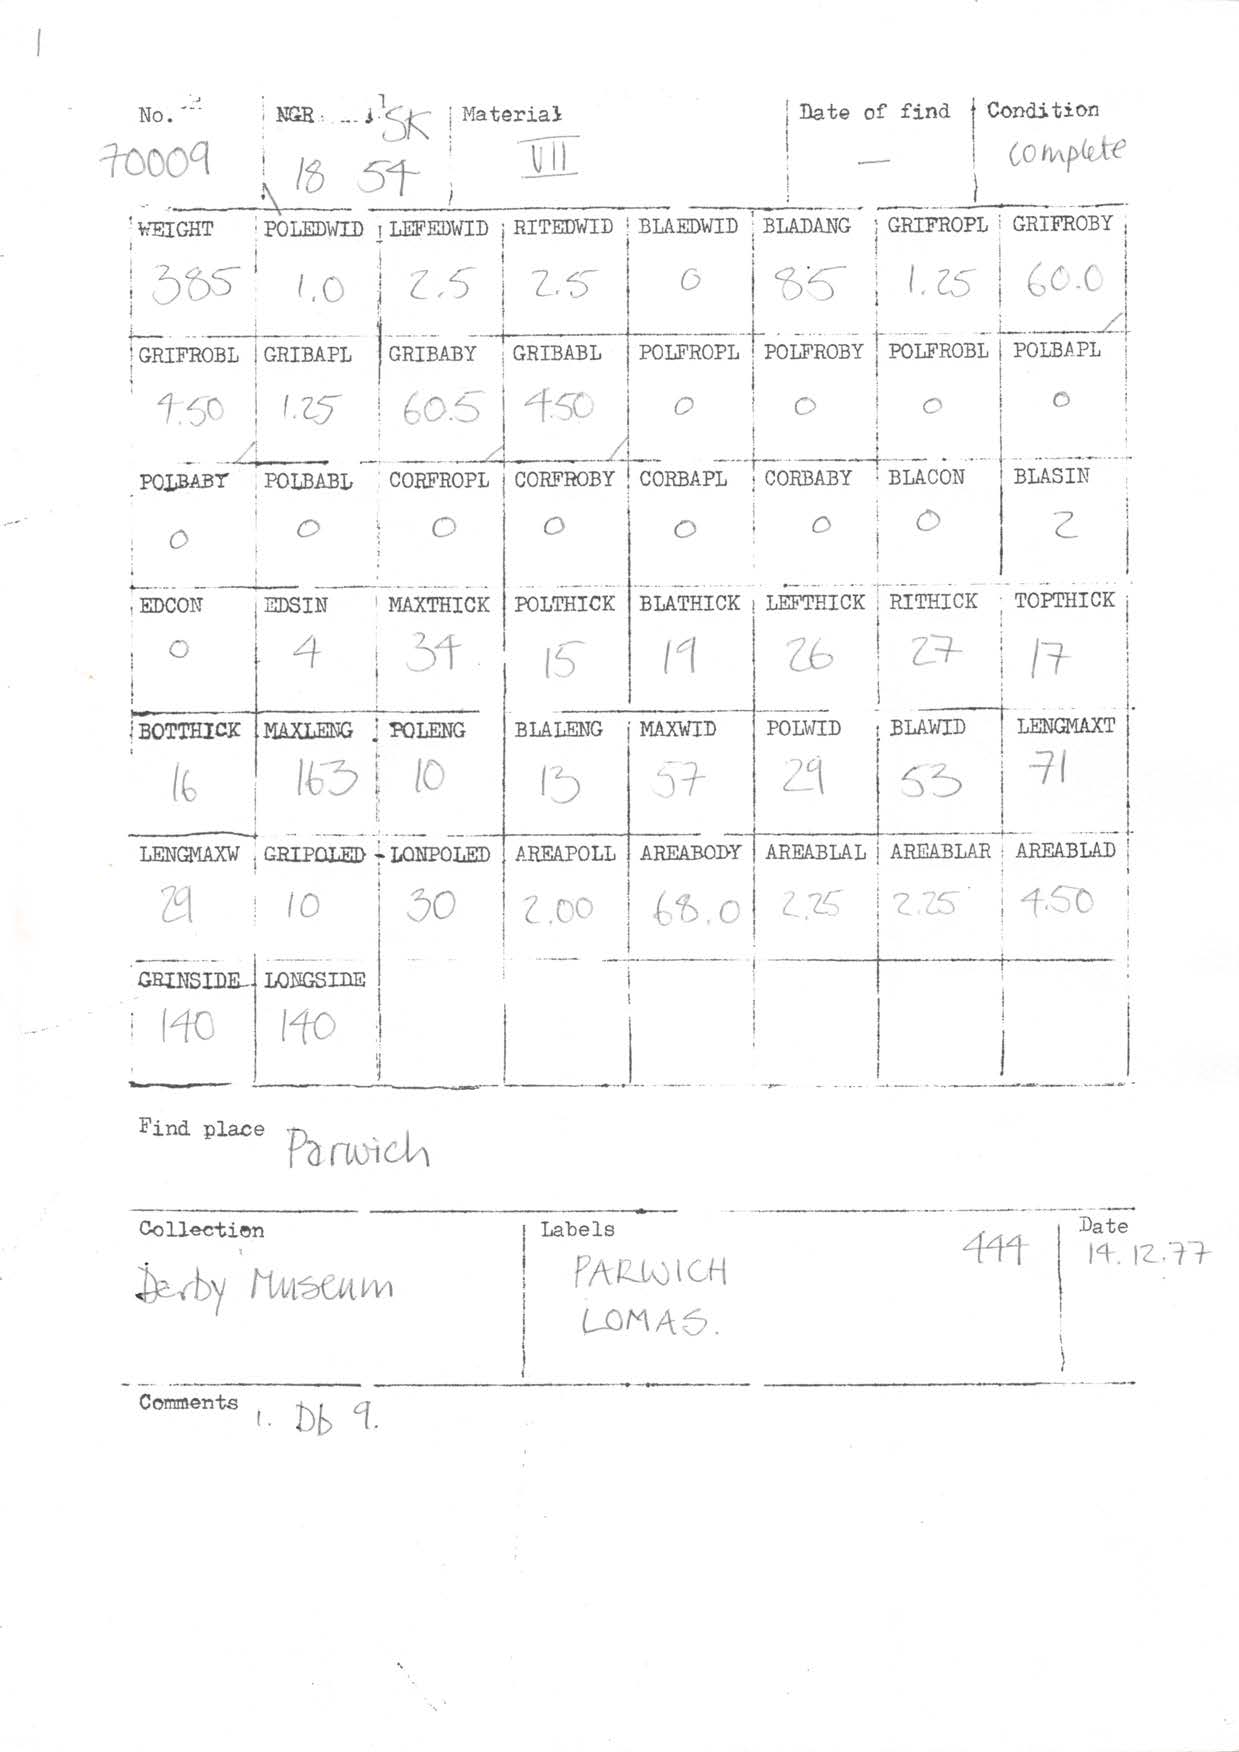 1
No. NGR SK Material Date of find Condition
70009 18 54 VII — complete
WEIGHT POLEDWID LEFEDWID RITEDWID BLAEDWID BLADANG GRIFROPL GRIFROBY
385 1.0 2.5 2.5 0 85 1.25 60.0
GRIFROBL GRIBAPL GRIBABY GRIBABL POLFROPL POLFROBY POLFROBL POLBAPL
4.50 1.25 60.5 4.50 0 0 0 0
POLBABY POLBABL CORFROPL CORFROBY CORBAPL CORBABY BLACON BLASIN
0 0 0 0 0 0 0 2
EDCON EDSIN MAXTHICK POLTHICK BLATHICK LEFTHICK RITHICK TOPTHICK
0 4 34 15 19 26 27 17
BOTTHICK MAXLENG POLENG BLALENG MAXWID POLWID BLAWID LENGMAXT
16 163 10 13 57 29 53 71
LENGMAXW GRIPOLED LONPOLED AREAPOLL AREABODY AREABLAL AREABLAR AREABLAD
29 10 30 2.00 68.0 2.25 2.25 4.50
GRINSIDE LONGSIDE
140 140
Find place Parwich
Collection Labels 444 Date
Derby Museum PARWICH 14.12.77
LOMAS.
Comments 1. Db 9.